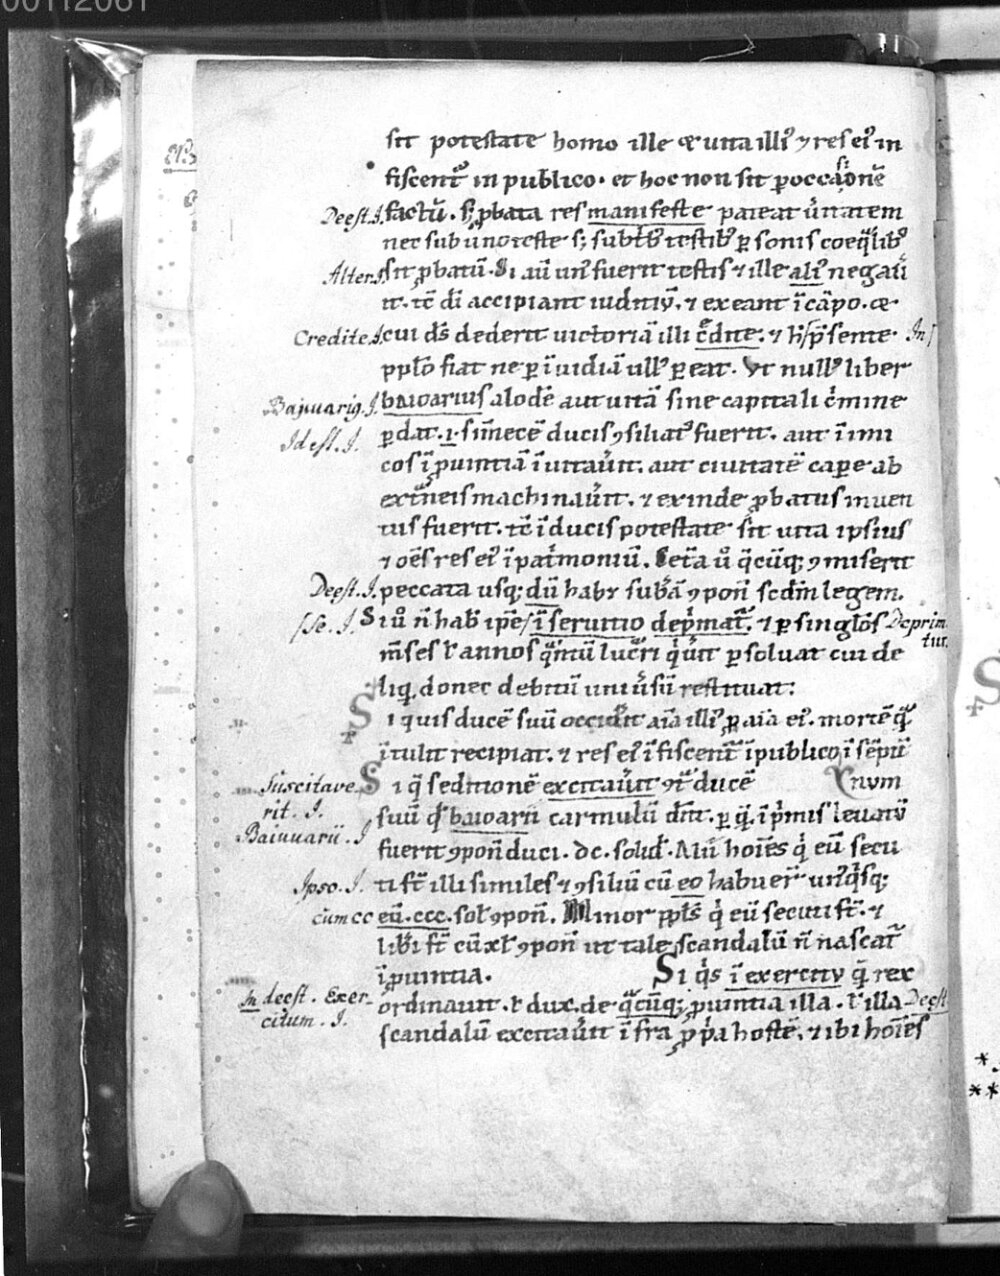 00112061
sit potestate homo ille & uita illi᾿ ⁊ res ei᾿ in
fiscent᾿ in publico. et hoc non sit ꝑ occasionē
Deest. J. factū. s; ꝓbata res manifeste pateat ueritatem
nec sub uno teste s; sub testib᾿ ꝑsonis coeq̄lib᾿
Alter. J. sit ꝓbatū. Si aū un᾿ fuerit testis ⁊ ille ali᾿ negau
it. tc̄ dī accipiant iudm̄. ⁊ exeant ī cāpo. &
Credite. J. cui ds̄ dederit uictoriā illi c̄dite. ⁊ h̄ p̄sente In
pplo fiat ne ꝑ īuidiā ull᾿ ꝑeat. Vt null᾿ liber
Bajuarig. J. baioarius alodē aut uitā sine capitali c̄mine
Id est. J. ꝑdat. .i. si in necē ducis ꝯsiliat᾿ fuerit. aut īimi
cos ī ꝓuintiā īuitau̅it. aut ciuitatē caꝑe ab
ext̄neis machinau̅it. ⁊ exinde ꝓbatus inuen
tus fuerit. tc̄ ī ducis potestate sit uita ipsius
⁊ oēs res ei᾿ ī pat̄moniū. Cet̄a u̅ q̄cūq; ꝯmiserit
Deest. J. peccata usq; dū habꝫ subs̄ā ꝯponat̄ scdm̄ legem.
sse. J. Si u̅ n̄ hab̄ ip̄e / ī seruitio dep̄mat᾿. ⁊ ꝑ singlos Deprim
tur.
m̄ses ł annos q̄ntū luc̄ri q̄uit ꝑsoluat cui de
liq̄ donec debitū uniu̅sū restituat:
Si quis ducē suū occid̄it aīa illi᾿ ꝑ aīa ei᾿. mortē q̄
ītulit recipiat. ⁊ res ei᾿ īfiscent᾿ ī publico ī sēpit̄
Si q̄ seditionē excitau̅it ꝯt̄ ducē num
Suscitave
rit. J.
suū q̄ baioarii carmulū dn̄t. ꝑ q̄ īp̄mis leuatū
Baiuuarii. J.
fuerit ꝯponat̄ duci. dc. solid̄. Alii hoīes q̄ eū secu
Ipso. J. ti st̄ illi similes ⁊ ꝯsiliū cū eo habuer̄ un᾿q̄sq;
cum cc eū. ccc. sol̄ ꝯpon̄. Minor ppl̄s q̄ eū secuti st̄. ⁊
lib̄i st̄ cū xl̄ ꝯpon̄ ut tale scandalū n̄ nascat᾿
ī ꝓuintia. Si q̄s ī exercitu q̄ rex
In deest. Exer-
citum. J.
ordinauit. ł dux. de q̄cūq; ꝓuintia illa. ł illa Deest
scandalū excitau̅it īfra ꝓp̄a hostē. ⁊ ibi hoīes